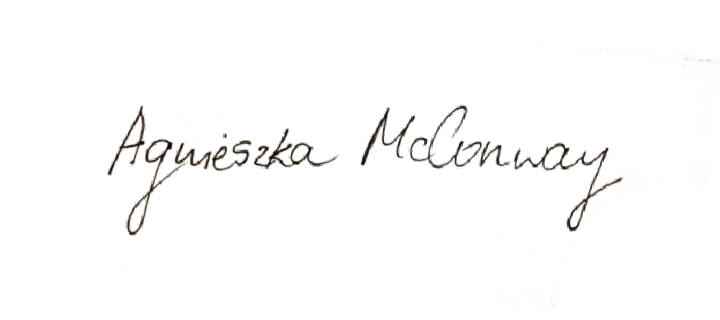 Agnieszka McConway